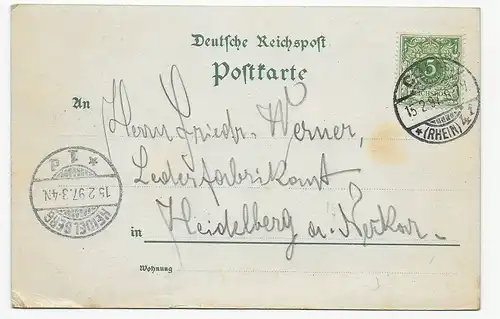 Deutsche Reichspost
Postkarte
An
Herrn Friedr. Werner,
Lederfabrikant
in Heidelberg a. Neckar.
Wohnung
5
REICHSPOST
15.2.97
*(RHEIN)
HEIDELBERG
15.2.97.3-4N.
* 1.d